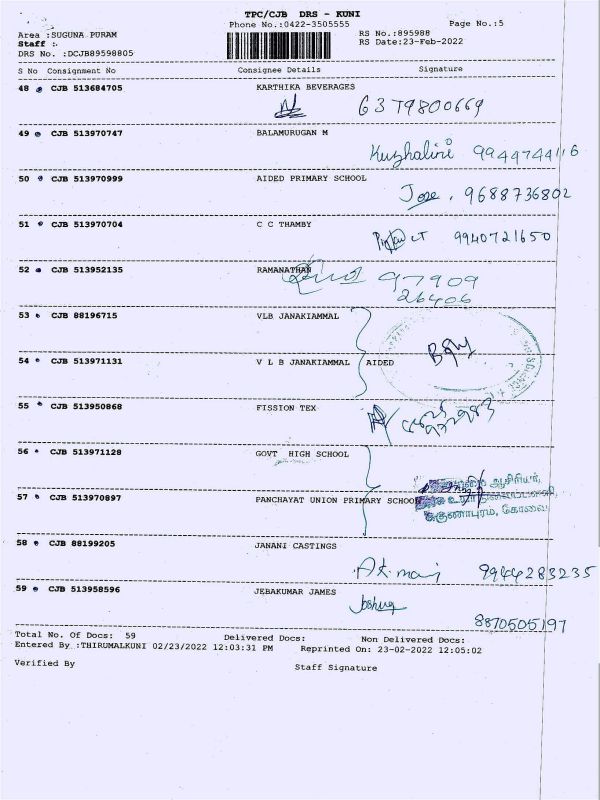 TPC/CJB DRS - KUNI
Phone No.:0422-3505555
Page No.:5
Area :SUGUNA PURAM
RS No.:895988
Staff :
RS Date:23-Feb-2022
DRS No. :DCJB89598805
S No Consignment No Consignee Details Signature
48 CJB 513684705 KARTHIKA BEVERAGES
6379800669
49 CJB 513970747 BALAMURUGAN M
Kuzhalini 9944744116
50 CJB 513970999 AIDED PRIMARY SCHOOL
Jose, 9688736802
51 CJB 513970704 C C THAMBY
9940721650
52 CJB 513952135 RAMANATHAN
97909
26406
53 CJB 88196715 VLB JANAKIAMMAL
54 CJB 513971131 V L B JANAKIAMMAL AIDED
55 CJB 513950868 FISSION TEX
56 CJB 513971128 GOVT HIGH SCHOOL
57 CJB 513970897 PANCHAYAT UNION PRIMARY SCHOOL
சுகுணாபுரம், கோவை
58 CJB 88199205 JANANI CASTINGS
9944283235
59 CJB 513958596 JEBAKUMAR JAMES
Joshua
8870505197
Total No. Of Docs: 59 Delivered Docs: Non Delivered Docs:
Entered By :THIRUMALKUNI 02/23/2022 12:03:31 PM Reprinted On: 23-02-2022 12:05:02
Verified By Staff Signature